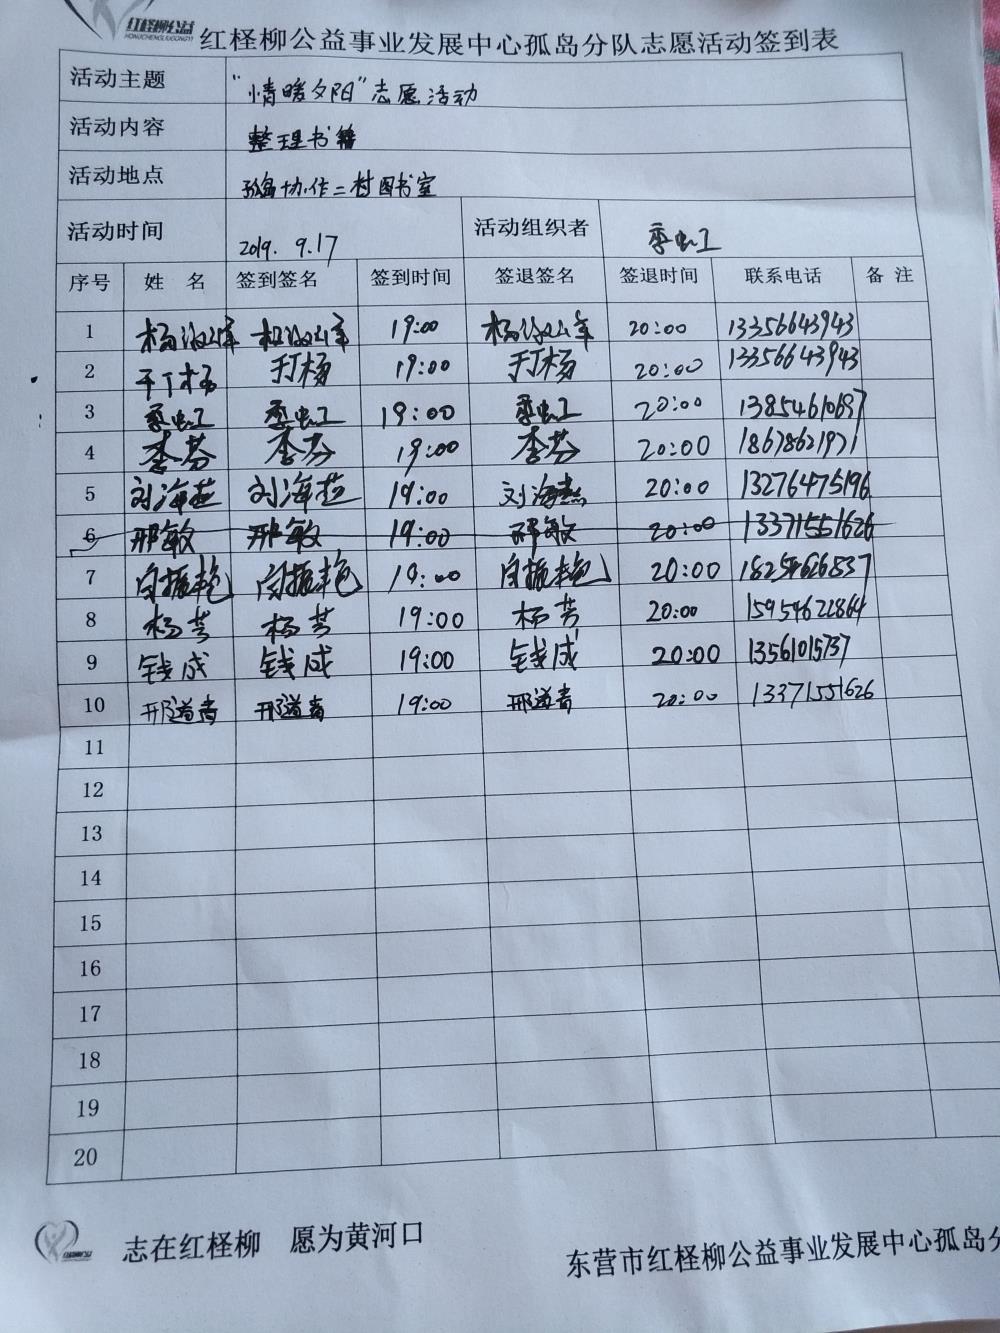 红柽柳公益
HONGCHENGLIUGONGYI
红柽柳公益事业发展中心孤岛分队志愿活动签到表
活动主题 “情暖夕阳”志愿活动
活动内容 整理书籍
活动地点 孤岛协作二村图书室
活动时间 2019. 9.17 活动组织者 季虫工
序号 姓 名 签到签名 签到时间 签退签名 签退时间 联系电话 备 注
1 19:00 20:00 13356643943
2 于丁杨 于丁杨 19:00 于丁杨 20:00 13356643943
3 季虫工 季虫工 19:00 季虫工 20:00 13854610697
4 李芬 李芬 19:00 李芬 20:00 18678621971
5 刘海 刘海 19:00 刘海 20:00 13276475196
6 邢敏 邢敏 19:00 邢敏 20:00 13371551626
7 向振艳 向振艳 19:00 向振艳 20:00 18254626837
8 杨芳 杨芳 19:00 杨芳 20:00 15954622864
9 钱成 钱成 19:00 钱成 20:00 13561015737
10 邢道青 邢道青 19:00 邢道青 20:00 13371551626
11
12
13
14
15
16
17
18
19
20
志在红柽柳 愿为黄河口
东营市红柽柳公益事业发展中心孤岛分